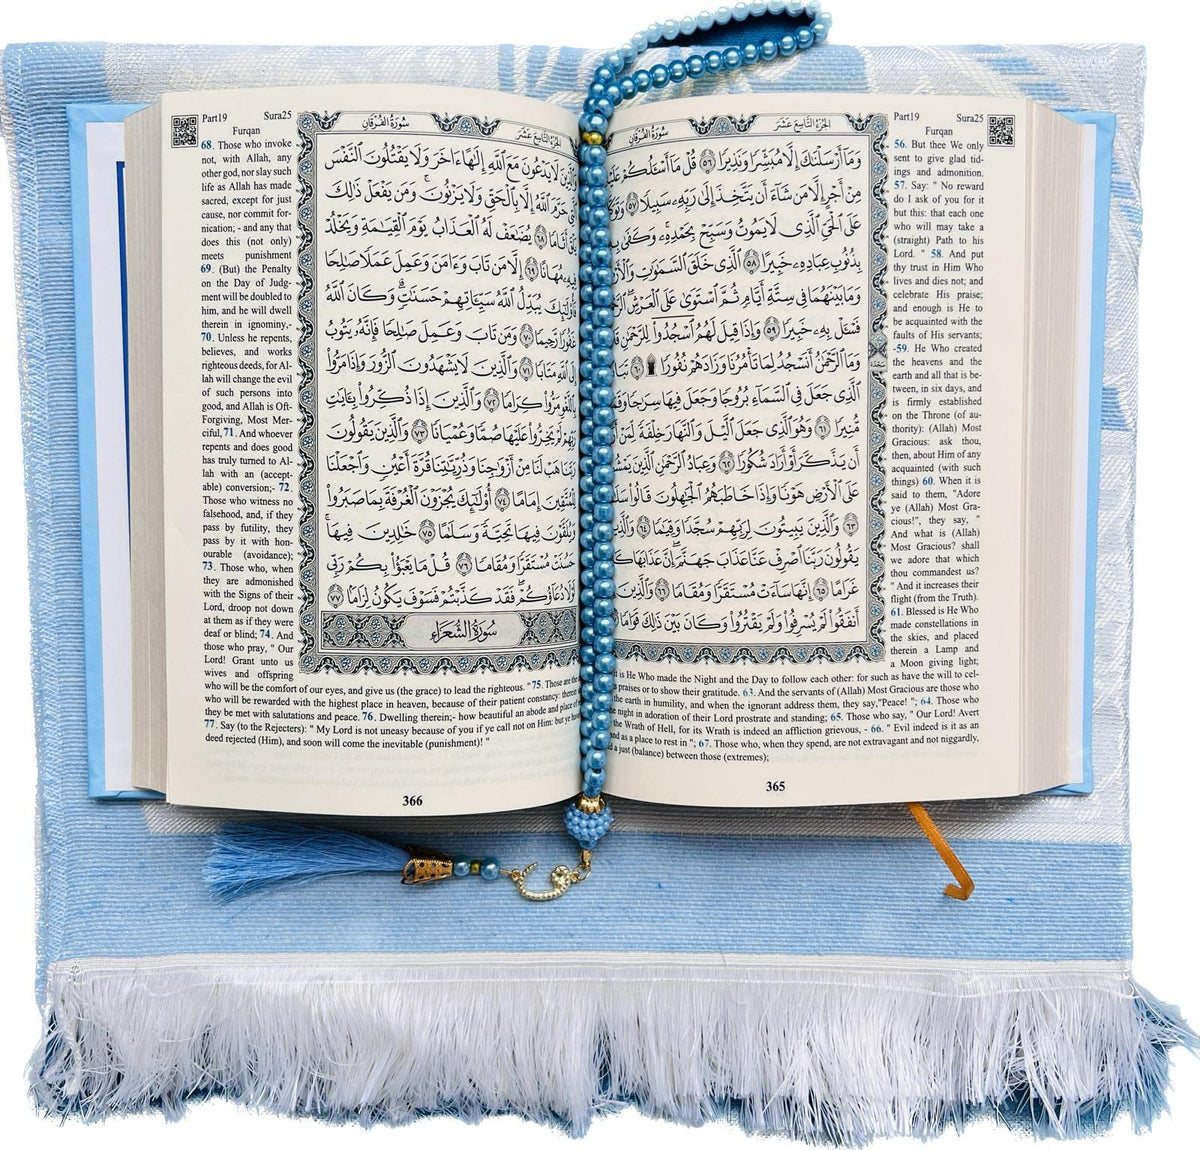 Part19 Sura25
Furqan
الجُزْءُ التَّاسِعَ عَشَرَ
سُورَةُ الفُرْقَانِ
وَمَا أَرْسَلْنَٰكَ إِلَّا مُبَشِّرًا وَنَذِيرًا ٥٦ قُلْ مَا أَسْـَٔلُكُمْ
مِنْ أَجْرٍ إِلَّا مَن شَاءَ أَن يَتَّخِذَ إِلَىٰ رَبِّهِۦ سَبِيلًا ٥٧
عَلَى الْحَيِّ الَّذِى لَا يَمُوتُ وَسَبِّحْ بِحَمْدِهِۦ وَكَفَىٰ
بِذُنُوبِ عِبَادِهِۦ خَبِيرًا ٥٨ الَّذِى خَلَقَ السَّمَٰوَٰتِ
وَمَا بَيْنَهُمَا فِى سِتَّةِ أَيَّامٍ ثُمَّ اسْتَوَىٰ عَلَى الْعَرْشِ
فَسْـَٔلْ بِهِۦ خَبِيرًا ٥٩ وَإِذَا قِيلَ لَهُمُ اسْجُدُوا لِلرَّحْمَٰنِ
وَمَا الرَّحْمَٰنُ أَنَسْجُدُ لِمَا تَأْمُرُنَا وَزَادَهُمْ نُفُورًا ۩ ٦٠
الَّذِى جَعَلَ فِى السَّمَاءِ بُرُوجًا وَجَعَلَ فِيهَا سِرَٰجًا
مُنِيرًا ٦١ وَهُوَ الَّذِى جَعَلَ الَّيْلَ وَالنَّهَارَ خِلْفَةً لِمَنْ
أَن يَذَّكَّرَ أَوْ أَرَادَ شُكُورًا ٦٢ وَعِبَادُ الرَّحْمَٰنِ الَّذِينَ
عَلَى الْأَرْضِ هَوْنًا وَإِذَا خَاطَبَهُمُ الْجَٰهِلُونَ قَالُوا
٦٣ وَالَّذِينَ يَبِيتُونَ لِرَبِّهِمْ سُجَّدًا وَقِيَٰمًا ٦٤
يَقُولُونَ رَبَّنَا اصْرِفْ عَنَّا عَذَابَ جَهَنَّمَ إِنَّ عَذَابَهَا
غَرَامًا ٦٥ إِنَّهَا سَاءَتْ مُسْتَقَرًّا وَمُقَامًا ٦٦ وَالَّذِينَ
أَنفَقُوا لَمْ يُسْرِفُوا وَلَمْ يَقْتُرُوا وَكَانَ بَيْنَ ذَٰلِكَ قَوَامًا
سَجْدَة
56. But thee We only
sent to give glad tid-
ings and admonition.
57. Say: " No reward
do I ask of you for it
but this: that each one
who will may take a
(straight) Path to his
Lord. " 58. And put
thy trust in Him Who
lives and dies not; and
celebrate His praise;
and enough is He to
be acquainted with the
faults of His servants;
-59. He Who created
the heavens and the
earth and all that is be-
tween, in six days, and
is firmly established
on the Throne (of au-
thority): (Allah) Most
Gracious: ask thou,
then, about Him of any
acquainted (with such
things) 60. When it is
said to them, "Adore
ye (Allah) Most Gra-
cious!", they say, "
And what is (Allah)
Most Gracious? shall
we adore that which
thou commandest us?
" And it increases their
flight (from the Truth).
61. Blessed is He Who
made constellations in
the skies, and placed
therein a Lamp and
a Moon giving light;
it is He Who made the Night and the Day to follow each other: for such as have the will to cel-
praises or to show their gratitude. 63. And the servants of (Allah) Most Gracious are those who
earth in humility, and when the ignorant address them, they say,"Peace! "; 64. Those who
night in adoration of their Lord prostrate and standing; 65. Those who say, " Our Lord! Avert
the Wrath of Hell, for its Wrath is indeed an affliction grievous, - 66. " Evil indeed is it as an
and as a place to rest in "; 67. Those who, when they spend, are not extravagant and not niggardly,
a just (balance) between those (extremes);
365
Part19 Sura25
Furqan
الجُزْءُ التَّاسِعَ عَشَرَ
سُورَةُ الفُرْقَانِ
لَا يَدْعُونَ مَعَ اللَّهِ إِلَٰهًا ءَاخَرَ وَلَا يَقْتُلُونَ النَّفْسَ
حَرَّمَ اللَّهُ إِلَّا بِالْحَقِّ وَلَا يَزْنُونَ وَمَن يَفْعَلْ ذَٰلِكَ
أَثَامًا ٦٨ يُضَٰعَفْ لَهُ الْعَذَابُ يَوْمَ الْقِيَٰمَةِ وَيَخْلُدْ
فِيهِۦ مُهَانًا ٦٩ إِلَّا مَن تَابَ وَءَامَنَ وَعَمِلَ عَمَلًا صَٰلِحًا
فَأُولَٰئِكَ يُبَدِّلُ اللَّهُ سَيِّـَٔاتِهِمْ حَسَنَٰتٍ وَكَانَ اللَّهُ
غَفُورًا رَحِيمًا ٧٠ وَمَن تَابَ وَعَمِلَ صَٰلِحًا فَإِنَّهُ يَتُوبُ
إِلَى اللَّهِ مَتَابًا ٧١ وَالَّذِينَ لَا يَشْهَدُونَ الزُّورَ وَإِذَا مَرُّوا
بِاللَّغْوِ مَرُّوا كِرَامًا ٧٢ وَالَّذِينَ إِذَا ذُكِّرُوا بِـَٔايَٰتِ
رَبِّهِمْ لَمْ يَخِرُّوا عَلَيْهَا صُمًّا وَعُمْيَانًا ٧٣ وَالَّذِينَ يَقُولُونَ
رَبَّنَا هَبْ لَنَا مِنْ أَزْوَٰجِنَا وَذُرِّيَّٰتِنَا قُرَّةَ أَعْيُنٍ وَاجْعَلْنَا
لِلْمُتَّقِينَ إِمَامًا ٧٤ أُولَٰئِكَ يُجْزَوْنَ الْغُرْفَةَ بِمَا صَبَرُوا
وَيُلَقَّوْنَ فِيهَا تَحِيَّةً وَسَلَٰمًا ٧٥ خَٰلِدِينَ فِيهَا
حَسُنَتْ مُسْتَقَرًّا وَمُقَامًا ٧٦ قُلْ مَا يَعْبَؤُا بِكُمْ رَبِّى
لَوْلَا دُعَاؤُكُمْ فَقَدْ كَذَّبْتُمْ فَسَوْفَ يَكُونُ لِزَامًا ٧٧
سُورَةُ الشُّعَرَاءِ
68. Those who invoke
not, with Allah, any
other god, nor slay such
life as Allah has made
sacred, except for just
cause, nor commit for-
nication; - and any that
does this (not only)
meets punishment
69. (But) the Penalty
on the Day of Judg-
ment will be doubled to
him, and he will dwell
therein in ignominy,-
70. Unless he repents,
believes, and works
righteous deeds, for Al-
lah will change the evil
of such persons into
good, and Allah is Oft-
Forgiving, Most Mer-
ciful, 71. And whoever
repents and does good
has truly turned to Al-
lah with an (accept-
able) conversion;- 72.
Those who witness no
falsehood, and, if they
pass by futility, they
pass by it with hon-
ourable (avoidance);
73. Those who, when
they are admonished
with the Signs of their
Lord, droop not down
at them as if they were
deaf or blind; 74. And
those who pray, " Our
Lord! Grant unto us
wives and offspring
who will be the comfort of our eyes, and give us (the grace) to lead the righteous. " 75. Those are the
who will be rewarded with the highest place in heaven, because of their patient constancy: therein
they be met with salutations and peace. 76. Dwelling therein;- how beautiful an abode and place of
77. Say (to the Rejecters): " My Lord is not uneasy because of you if ye call not on Him: but ye have
deed rejected (Him), and soon will come the inevitable (punishment)! "
366